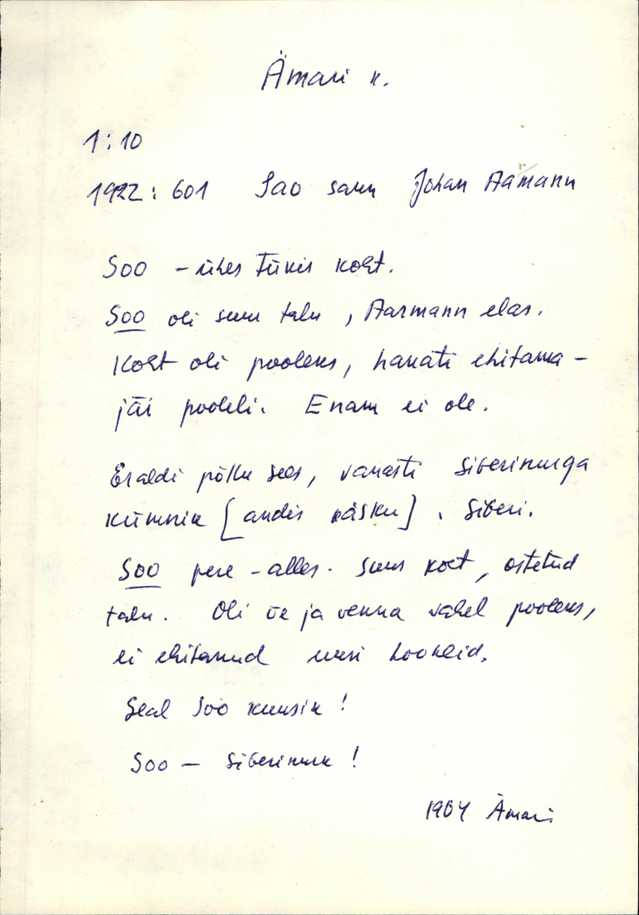 Ämari k.
1:10
1922: 601 Sao saun Johan Aamann
Soo – ühes tükis koht.
Soo oli suur talu, Aasmann elas.
Koht oli pooleks, hakati ehitama –
jäi pooleli. Enam ei ole.
Eraldi põllu sees, vanasti Siberinurga
kümnik [andis käsku]. Siberi.
Soo pere – alles. Suur koht, ostetud
talu. Oli õe ja venna vahel pooleks,
ei ehitanud uusi hooneid.
Seal Soo kuusik!
Soo – Siberinurk!
1964 Ämari